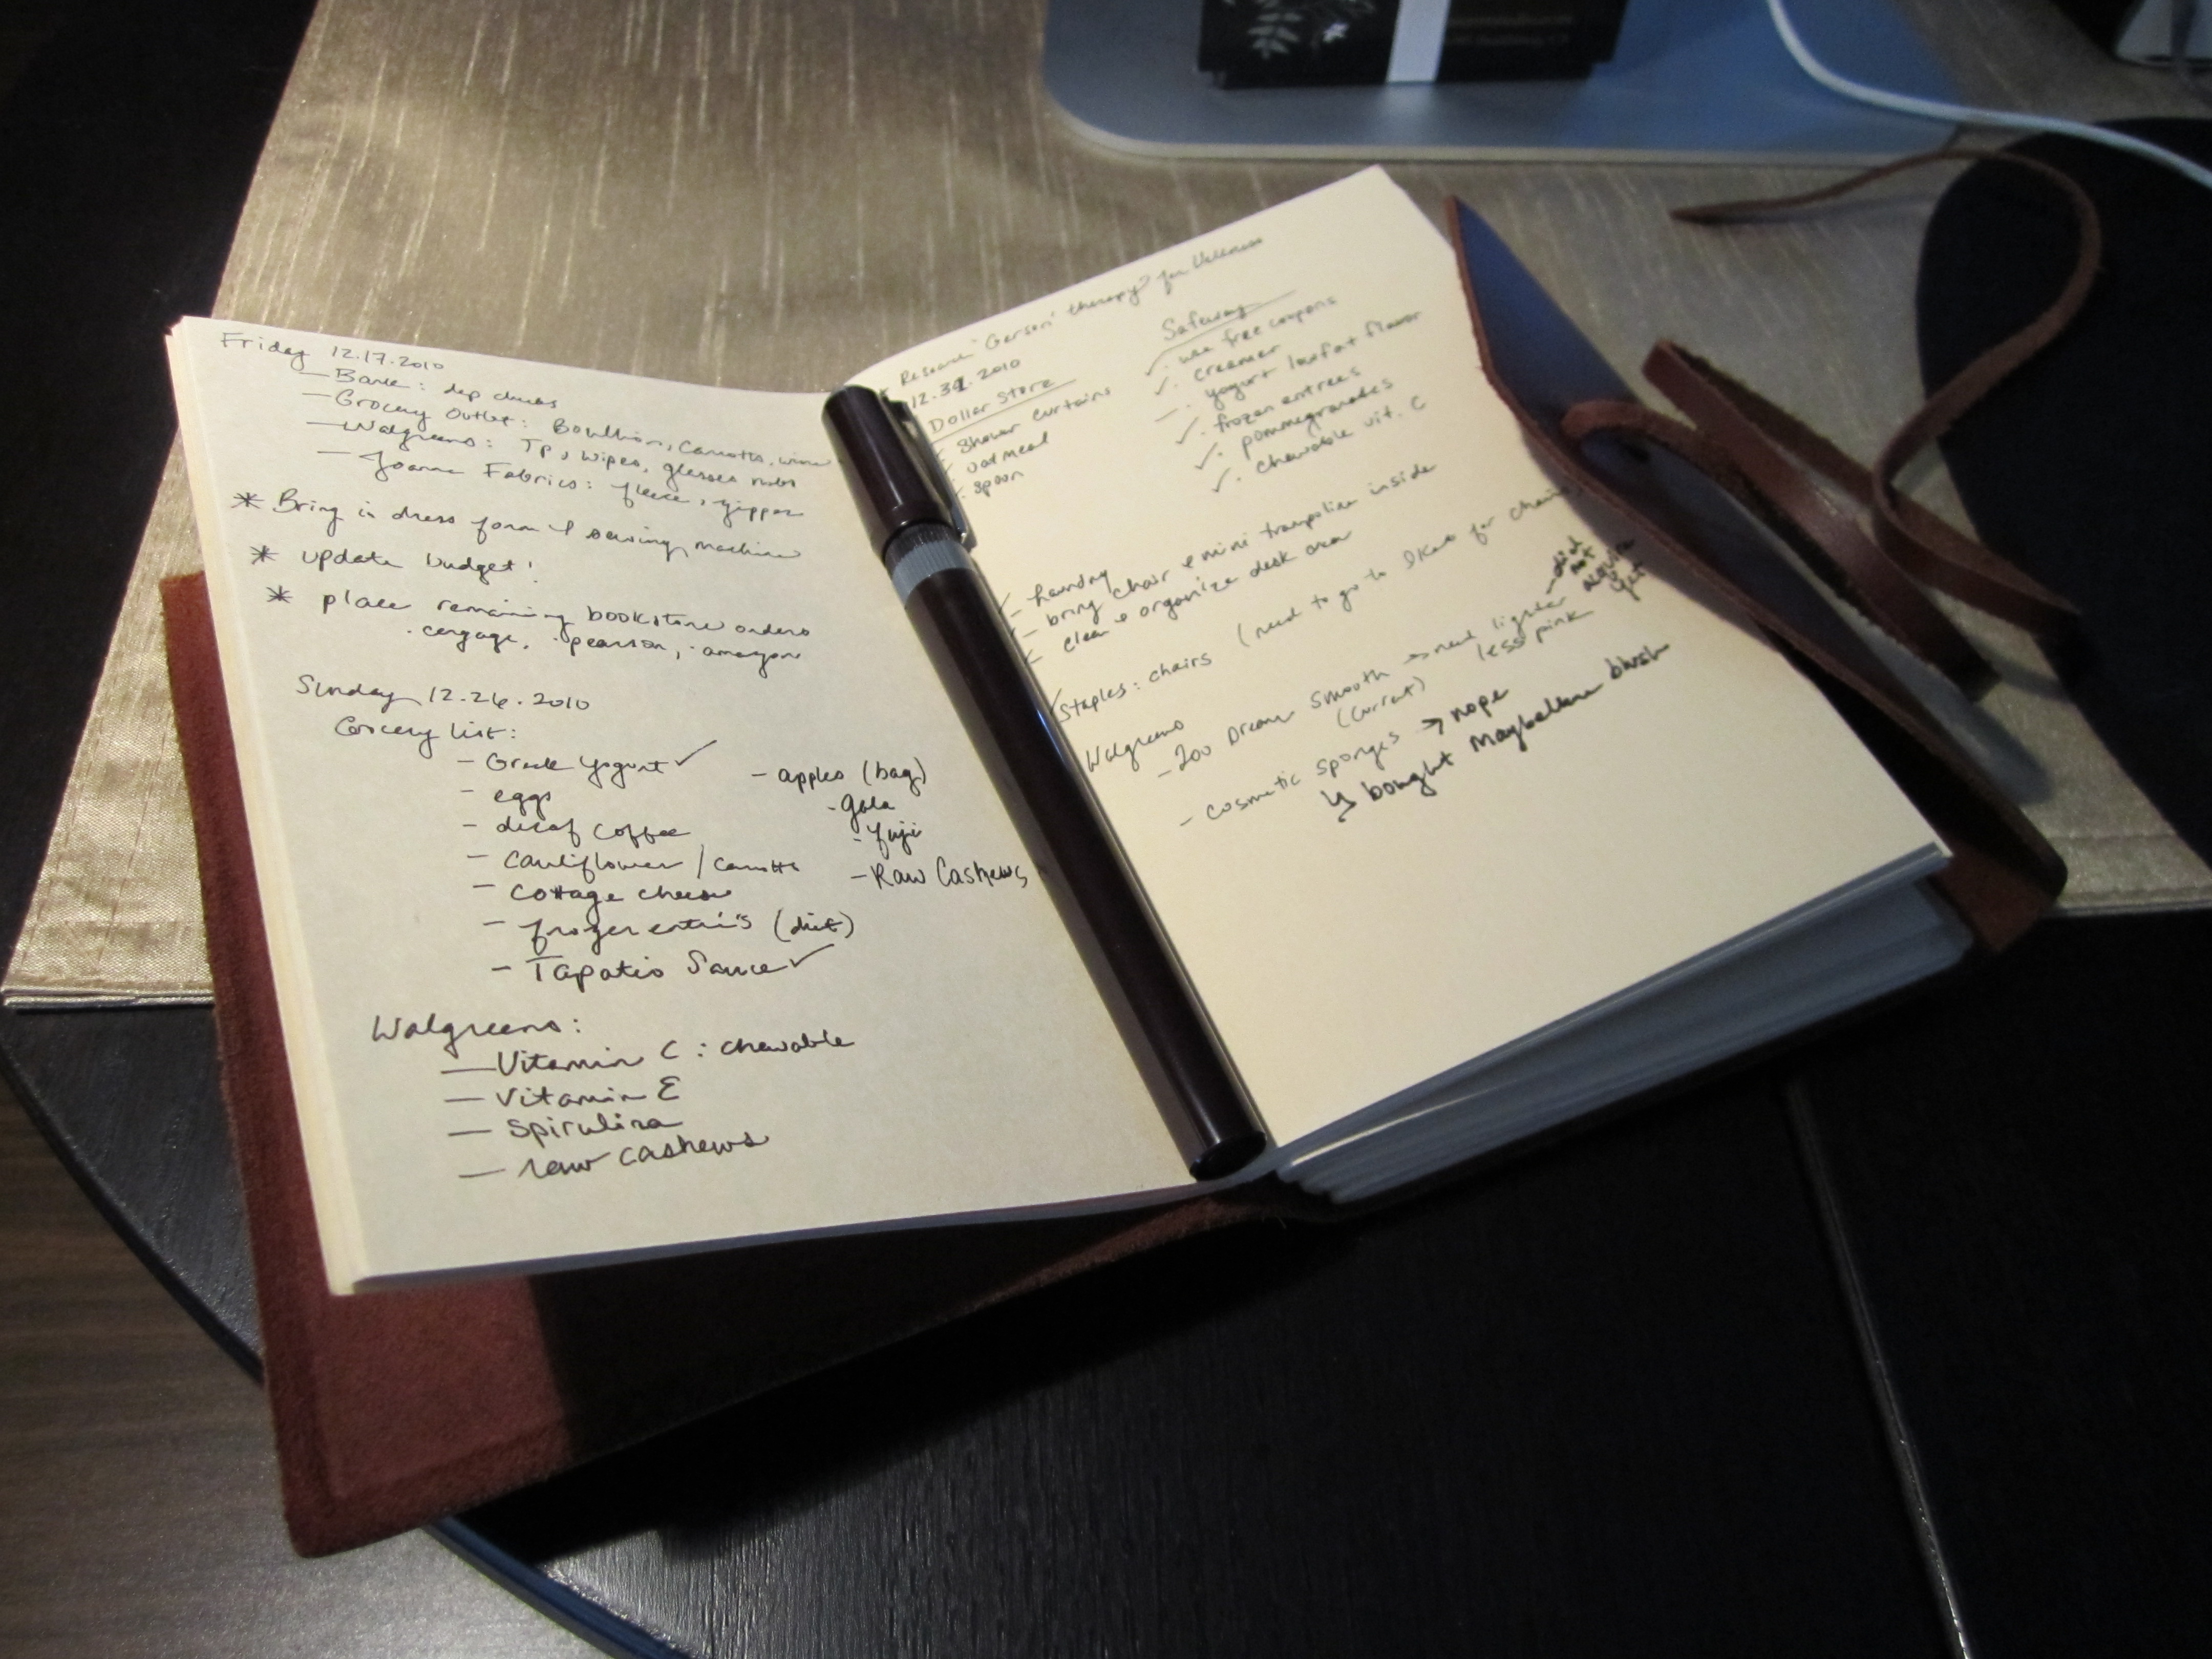 Friday 12.17.2010
— Bank: dep checks
— Grocery Outlet: Boullion, Carrotts, wine
— Walgreens: TP, wipes, glasses
— Joanne Fabrics: fleece, zipper
* Bring in dress form & sewing machine
* update budget!
* place remaining bookstore orders
· cengage, · pearson, · amazon
Sunday 12.26.2010
Grocery list:
- Greek yogurt ✓
- eggs
- decaf coffee
- cauliflower / carrotts
- cottage cheese
- frozen (diet)
- Tapatio Sauce ✓
- apples (bag)
- gala
- fuji
- Raw Cashews
Walgreens:
— Vitamin C : chewable
— Vitamin E
— Spirulina
— raw cashews
* Research "Gerson" therapy for Wellness
12.31.2010
Dollar Store
✓ shower curtains
✓ oatmeal
✓ spoon
Safeway
✓ use free coupons
✓ creamer
— yogurt lowfat flavor
✓ frozen entrees
✓ pommegranates
✓ chewable vit. C
✓ - laundry
✓ - bring chair & mini trampoline inside
✓ clean & organize desk area
✓ Staples: chairs (need to go to Ikea for chairs)
Walgreens
- 200 Dream Smooth → need lighter
(current) less pink
- did not acquire yet
- cosmetic sponges → nope
↳ bought Maybelline blush